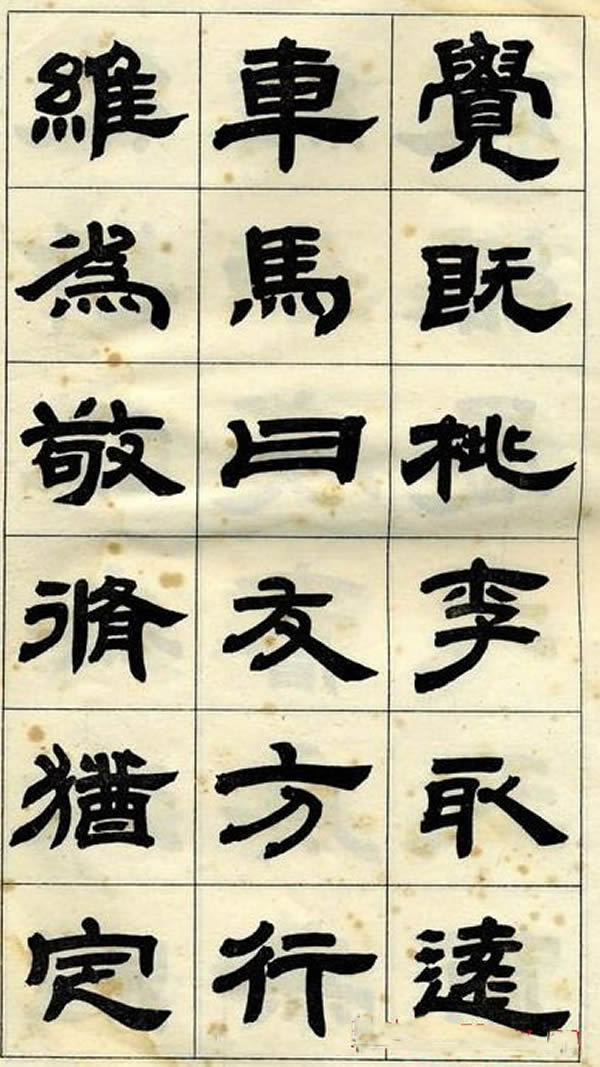 覺既桃李取達
車馬曰友方行
維為敬脩猶定